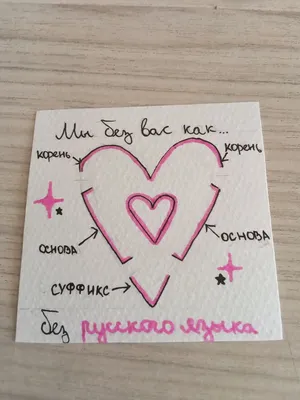 Мы без вас как...
корень
корень
основа
основа
суффикс
без русского языка